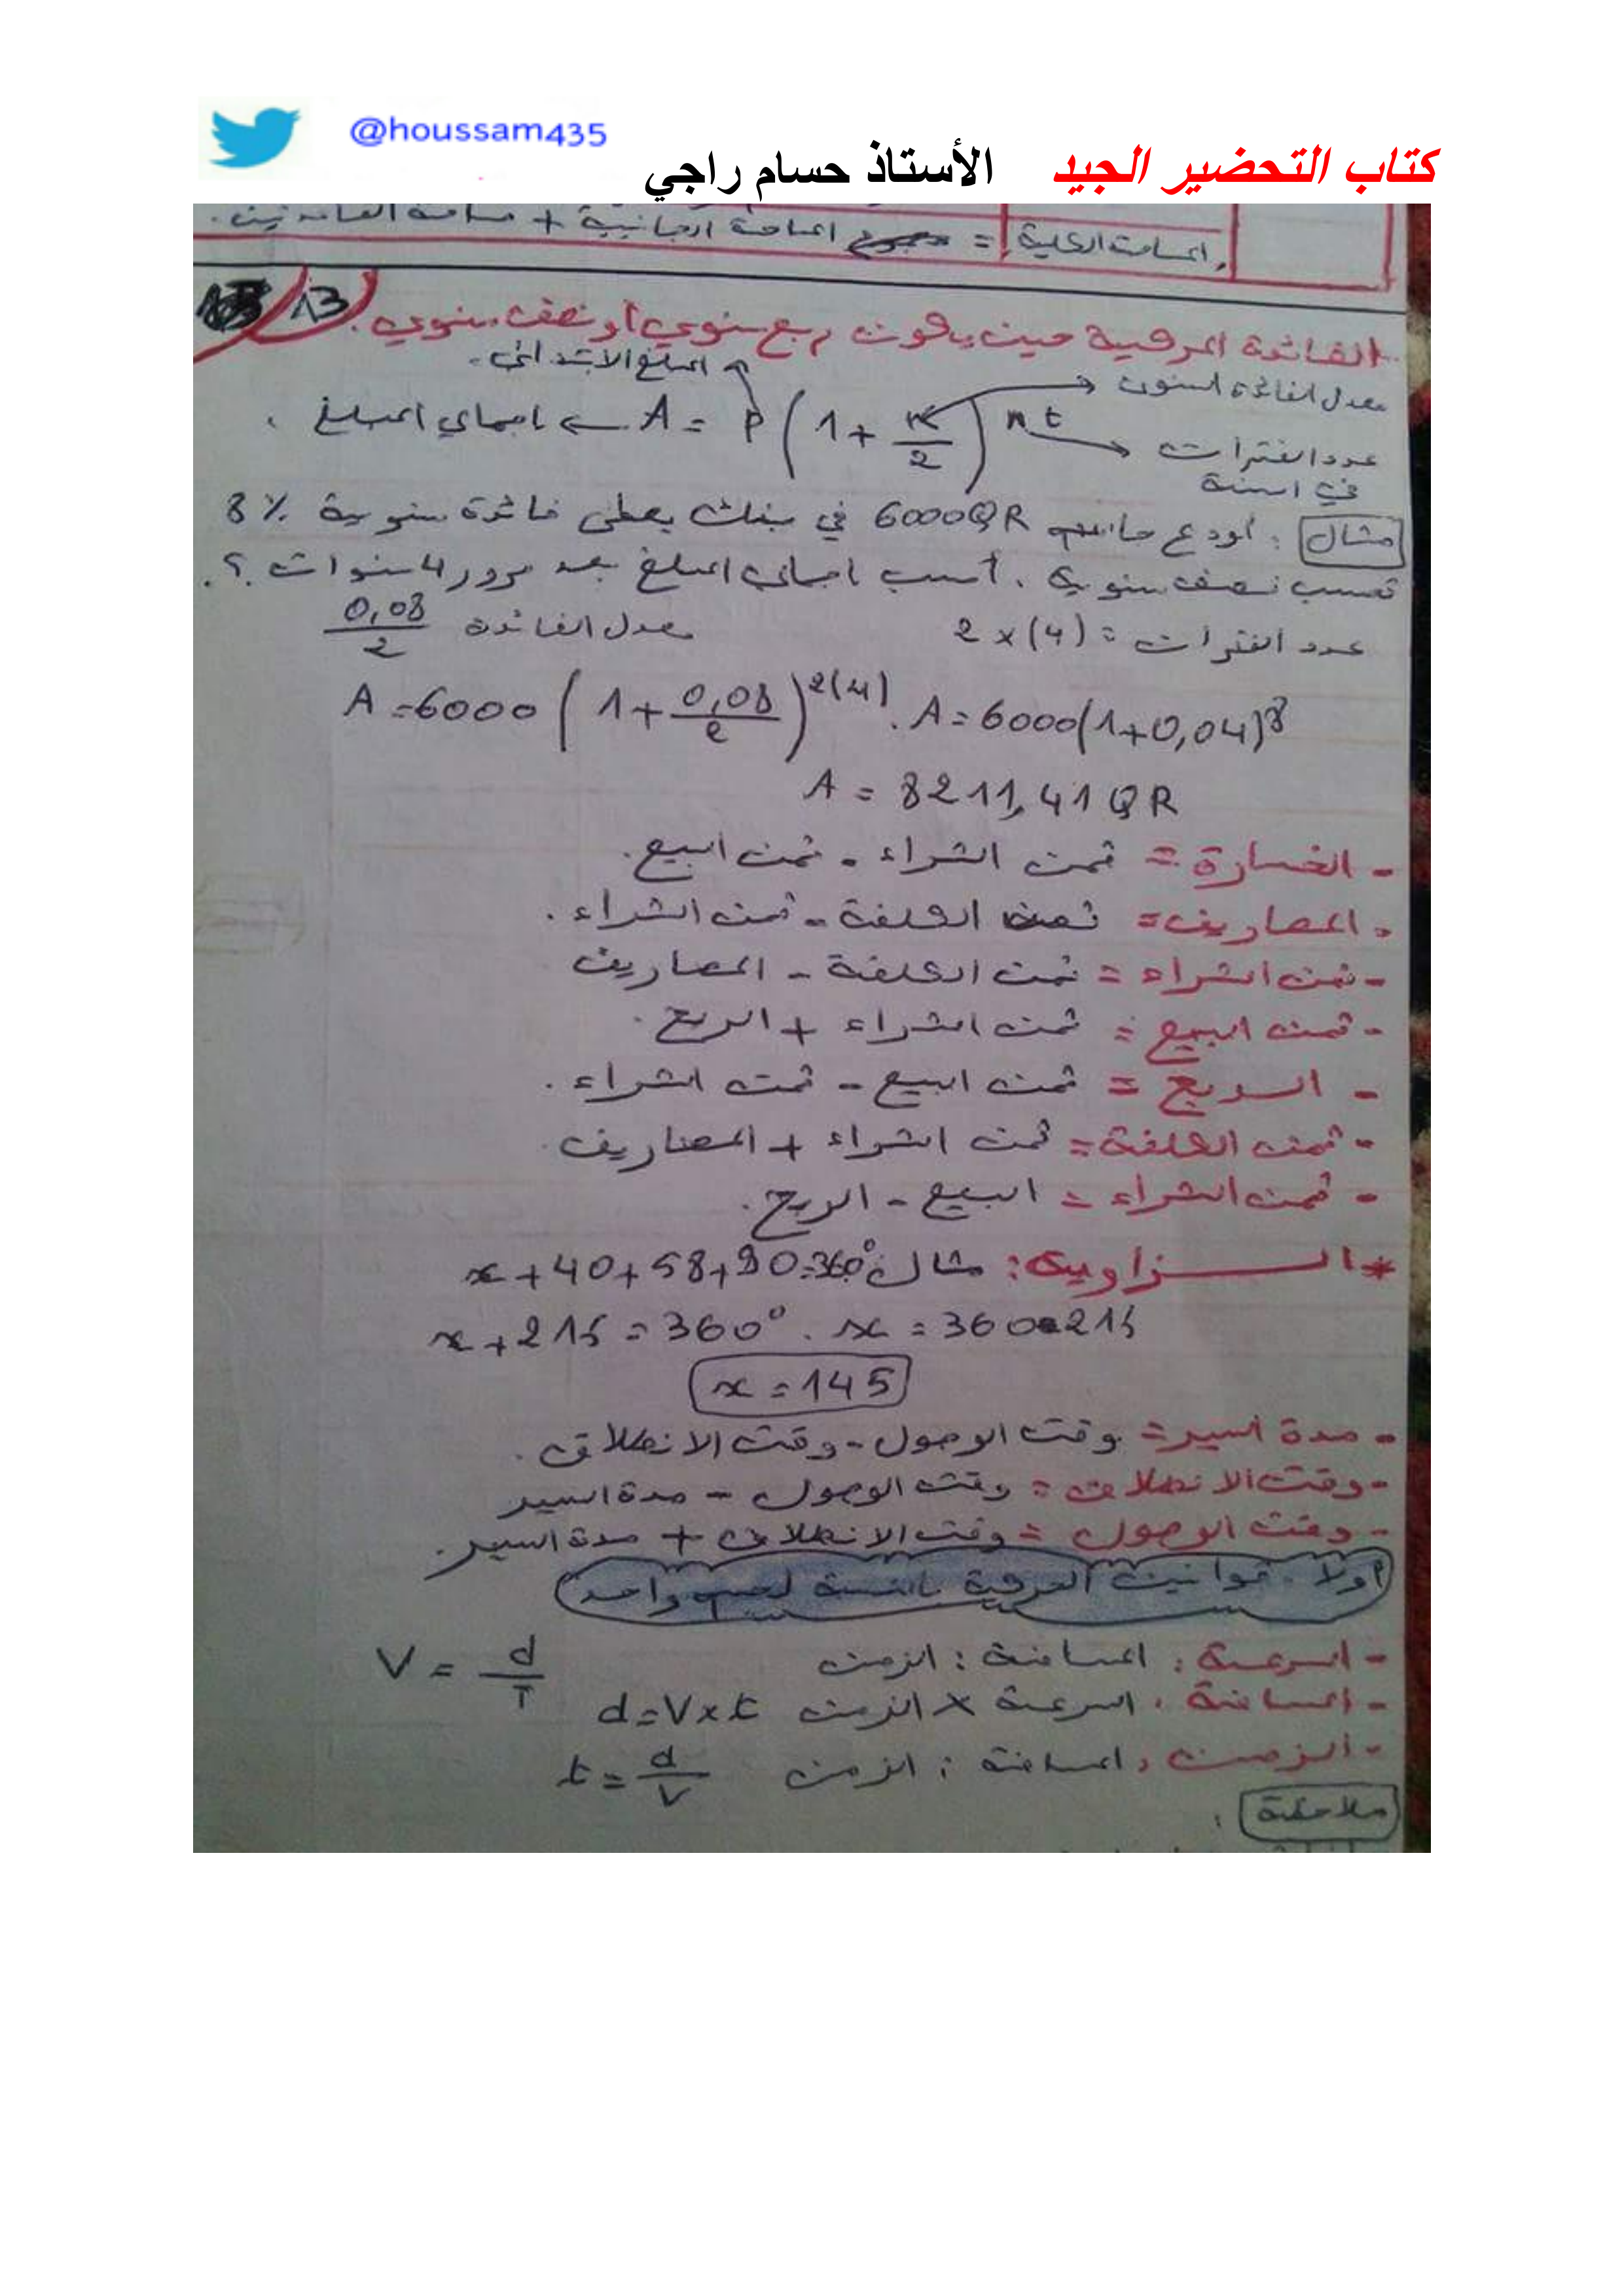 @houssam435
كتاب التحضير الجيد الأستاذ حسام راجي
المساحة الكلية = المساحة الجانبية + مساحة القاعدتين.
13
الفائدة المركبة حين يكون ربع سنوي أو نصف سنوي.
المبلغ الابتدائي.
معدل الفائدة السنوي
A = P (1 + r/2) n t ← اجمالي المبلغ
عدد الفترات
في السنة
مثال : أودع جاسم 6000QR في بنك يعطى فائدة سنوية 8%
تحسب نصف سنوية . أحسب اجمالي المبلغ بعد مرور 4 سنوات ؟.
عدد الفترات = 2 x (4) معدل الفائدة 0,08/2
A = 6000 (1 + 0,08/2)^2(4) . A = 6000(1+0,04)^8
A = 8211,41 QR
- الخسارة = ثمن الشراء - ثمن البيع.
- المصاريف = ثمن الكلفة - ثمن الشراء.
- ثمن الشراء = ثمن الكلفة - المصاريف
- ثمن البيع = ثمن الشراء + الربح.
- الربح = ثمن البيع - ثمن الشراء.
- ثمن الكلفة = ثمن الشراء + المصاريف.
- ثمن الشراء = البيع - الربح.
* الزاوية: مثال x+40+58+90=360°
x+215=360° . x=360-215
x = 145
- مدة السير = وقت الوصول - وقت الانطلاق.
- وقت الانطلاق = وقت الوصول - مدة السير
- وقت الوصول = وقت الانطلاق + مدة السير.
أولا. قوانين الحركية بالنسبة لجسم واحد
- السرعة : المسافة : الزمن V = d/T
- المسافة : السرعة x الزمن d=Vxt
- الزمن : المسافة : الزمن t = d/V
ملاحظة :